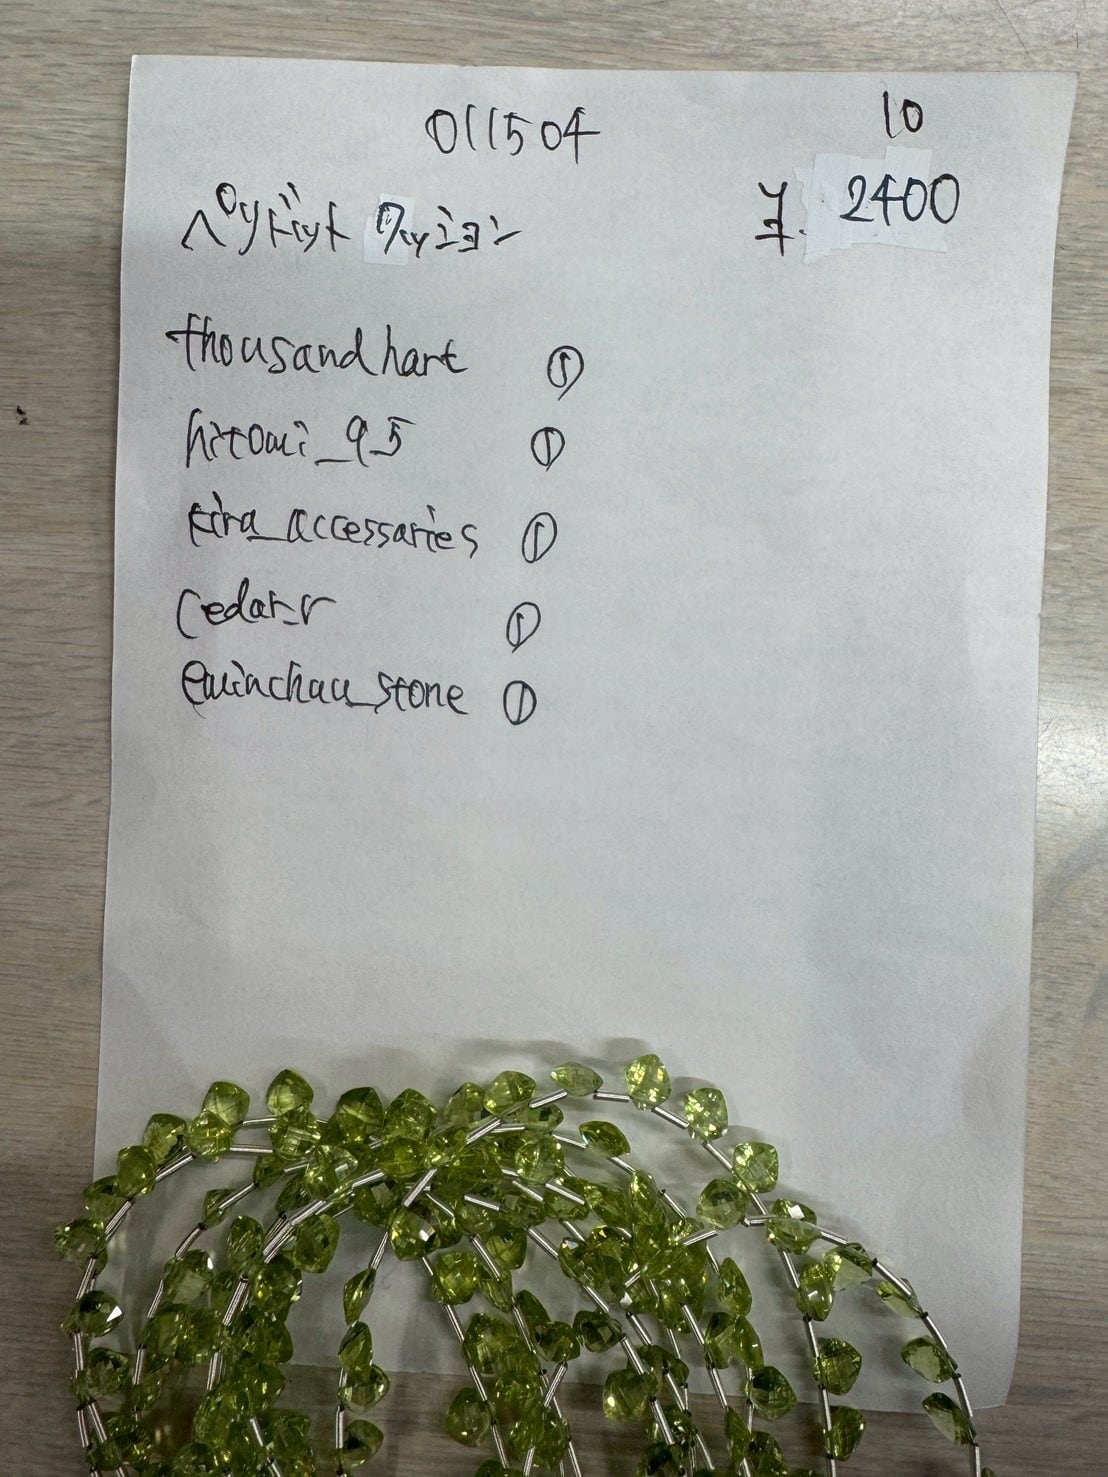 011504 10
ペリドット クッション ¥ 2400
thousandhart ①
hitomi_95 ①
kira_accessaries ①
cedar_r ①
stone ①